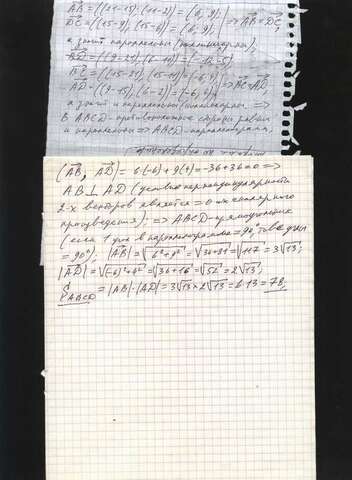 AB = ((21-15), (11-2)) = (6, 9);
DC = ((15-9), (15-6)) = (6, 9); => AB = DC,
а значит параллельны (коллинеарны).
AD = ((9-21), (6-11)) = (-12, -5)
BC = ((15-21), (15-11)) = (-6, 4); => BC = AD,
AD = ((9-15), (6-2)) = (-6, 4);
а значит и параллельны (коллинеарны. =>
В ABCD - противоположные стороны равны
и параллельны => ABCD - параллелограмм,
(AB, AD) = 6(-6) + 9(4) = -36+36=0 =>
AB ⊥ AD (условие перпендикулярности
2-х векторов является = 0 их скалярного
произведения); => ABCD - прямоугольник
(если 1 угол в параллелограмме = 90°, то все углы
= 90°); |AB| = √6²+9² = √36+81 = √117 = 3√13;
|AD| = √(-6)²+4² = √36+16 = √52 = 2√13;
S ABCD = |AB|·|AD| = 3√13 × 2√13 = 6·13 = 78.